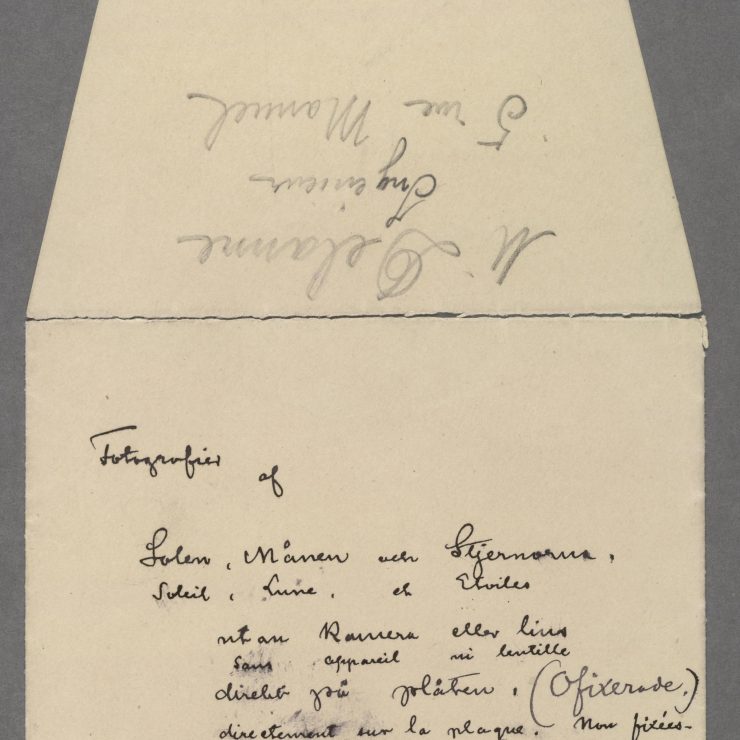 5 rue Manuel
Ingénieur
M Delanne
Fotografier
af
Solen, Månen och Stjernorna.
Soleil, Lune, et Etoiles
utan Kamera eller lins
sans appareil ni lentille
direkt på plåten. (Ofixerade.)
directement sur la plaque. Non fixées-